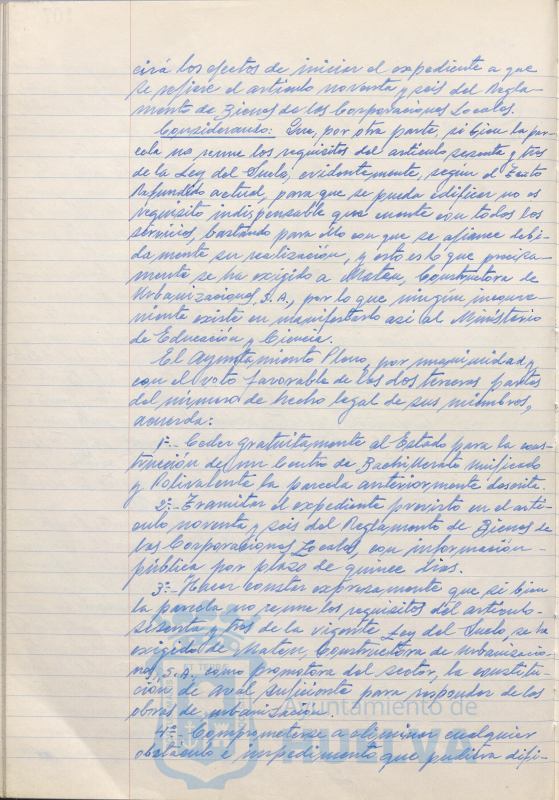 cirá los efectos de iniciar el expediente a que
se refiere el artículo noventa y seis del Regla-
mento de Bienes de las Corporaciones Locales.
Considerando: Que, por otra parte, si bien la par-
cela no reune los requisitos del artículo sesenta y tres
de la Ley del Suelo, evidentemente, según el Texto
Refundido actual, para que se pueda edificar no es
requisito indispensable que cuente con todos los
servicios, bastando para ello con que se afiance debi-
damente su realización, y esto es lo que precisa-
mente se ha exigido a Maten, Constructora de
Urbanizaciones, S.A., por lo que ningún inconve-
niente existe en manifestarlo así al Ministerio
de Educación y Ciencia.
El Ayuntamiento Pleno, por unanimidad y
con el voto favorable de las dos terceras partes
del número de hecho legal de sus miembros,
acuerda:
1º.- Ceder gratuitamente al Estado para la cons-
trucción de un Centro de Bachillerato unificado
y Polivalente la parcela anteriormente descrita.
2º.- Tramitar el expediente previsto en el artí-
culo noventa y seis del Reglamento de Bienes de
las Corporaciones Locales, con información
pública por plazo de quince días.
3º.- Hacer constar expresamente que si bien
la parcela no reune los requisitos del artículo
sesenta y tres de la vigente Ley del Suelo, se ha
exigido de Maten, Constructora de Urbanizacio-
nes, S.A. como promotora del sector, la constitu-
ción de aval suficiente para responder de las
obras de urbanización.
4º.- Comprometerse a eliminar cualquier
obstáculo e impedimento que pudiera difi-
Ayuntamiento de
HUELVA